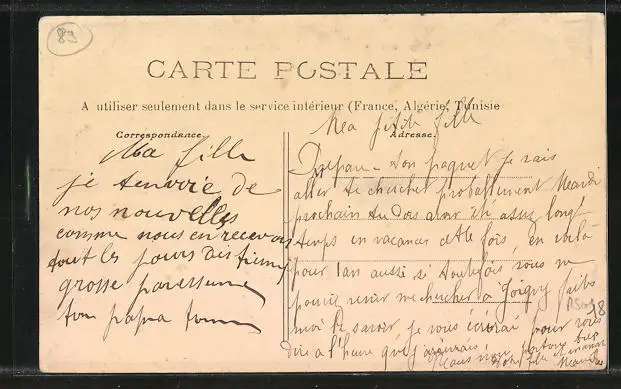 89
CARTE POSTALE
A utiliser seulement dans le service intérieur (France, Algérie, Tunisie
Correspondance
Ma fille
je t'envoie de
nos nouvelles
comme nous en recevons
tout les jours des tiennes
grosse paresseuse
ton papa
Adresse
Mea ptite fille
Prépare ton paquet je vais
aller te chercher probablement Mardi
prochain tu dois avoir été assez longt
temps en vacances cette fois, en voilà
pour 1 an aussi si toutefois vous ne
pouvez venir me chercher à Joigny faites
moi le savoir je vous écrirai pour vous
dire a l'heure que j'arriverai